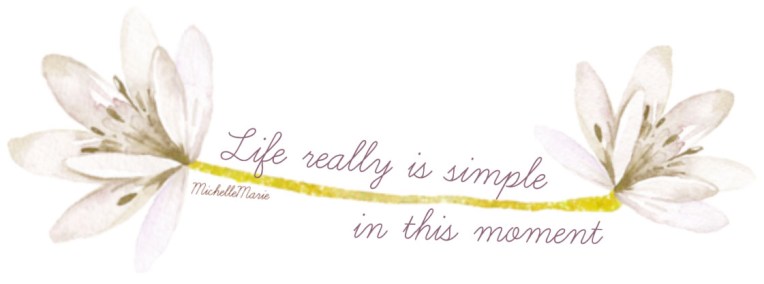 Life really is simple
MichelleMarie
in this moment